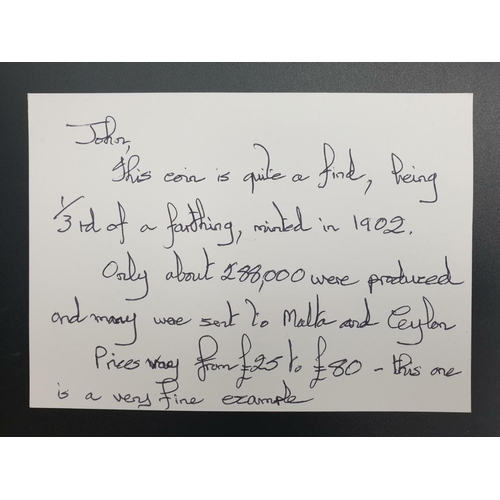 John,
This coin is quite a find, being
1/3 rd of a farthing, minted in 1902.
Only about 288,000 were produced
and many were sent to Malta and Ceylon
Prices vary from £25 to £80 - this one
is a very fine example